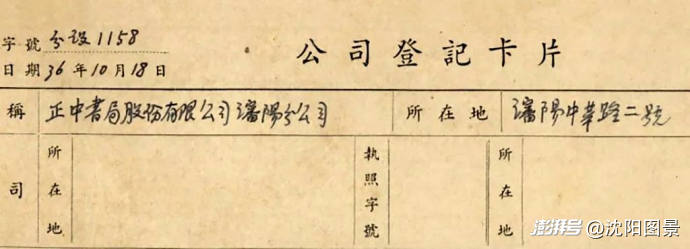 字號 分設1158
公司登記卡片
日期 36年10月18日
稱 正中書局股份有限公司瀋陽分公司 所在地 瀋陽中華路二號
司 所在地 執照字號 所在地
澎湃号@沈阳图景